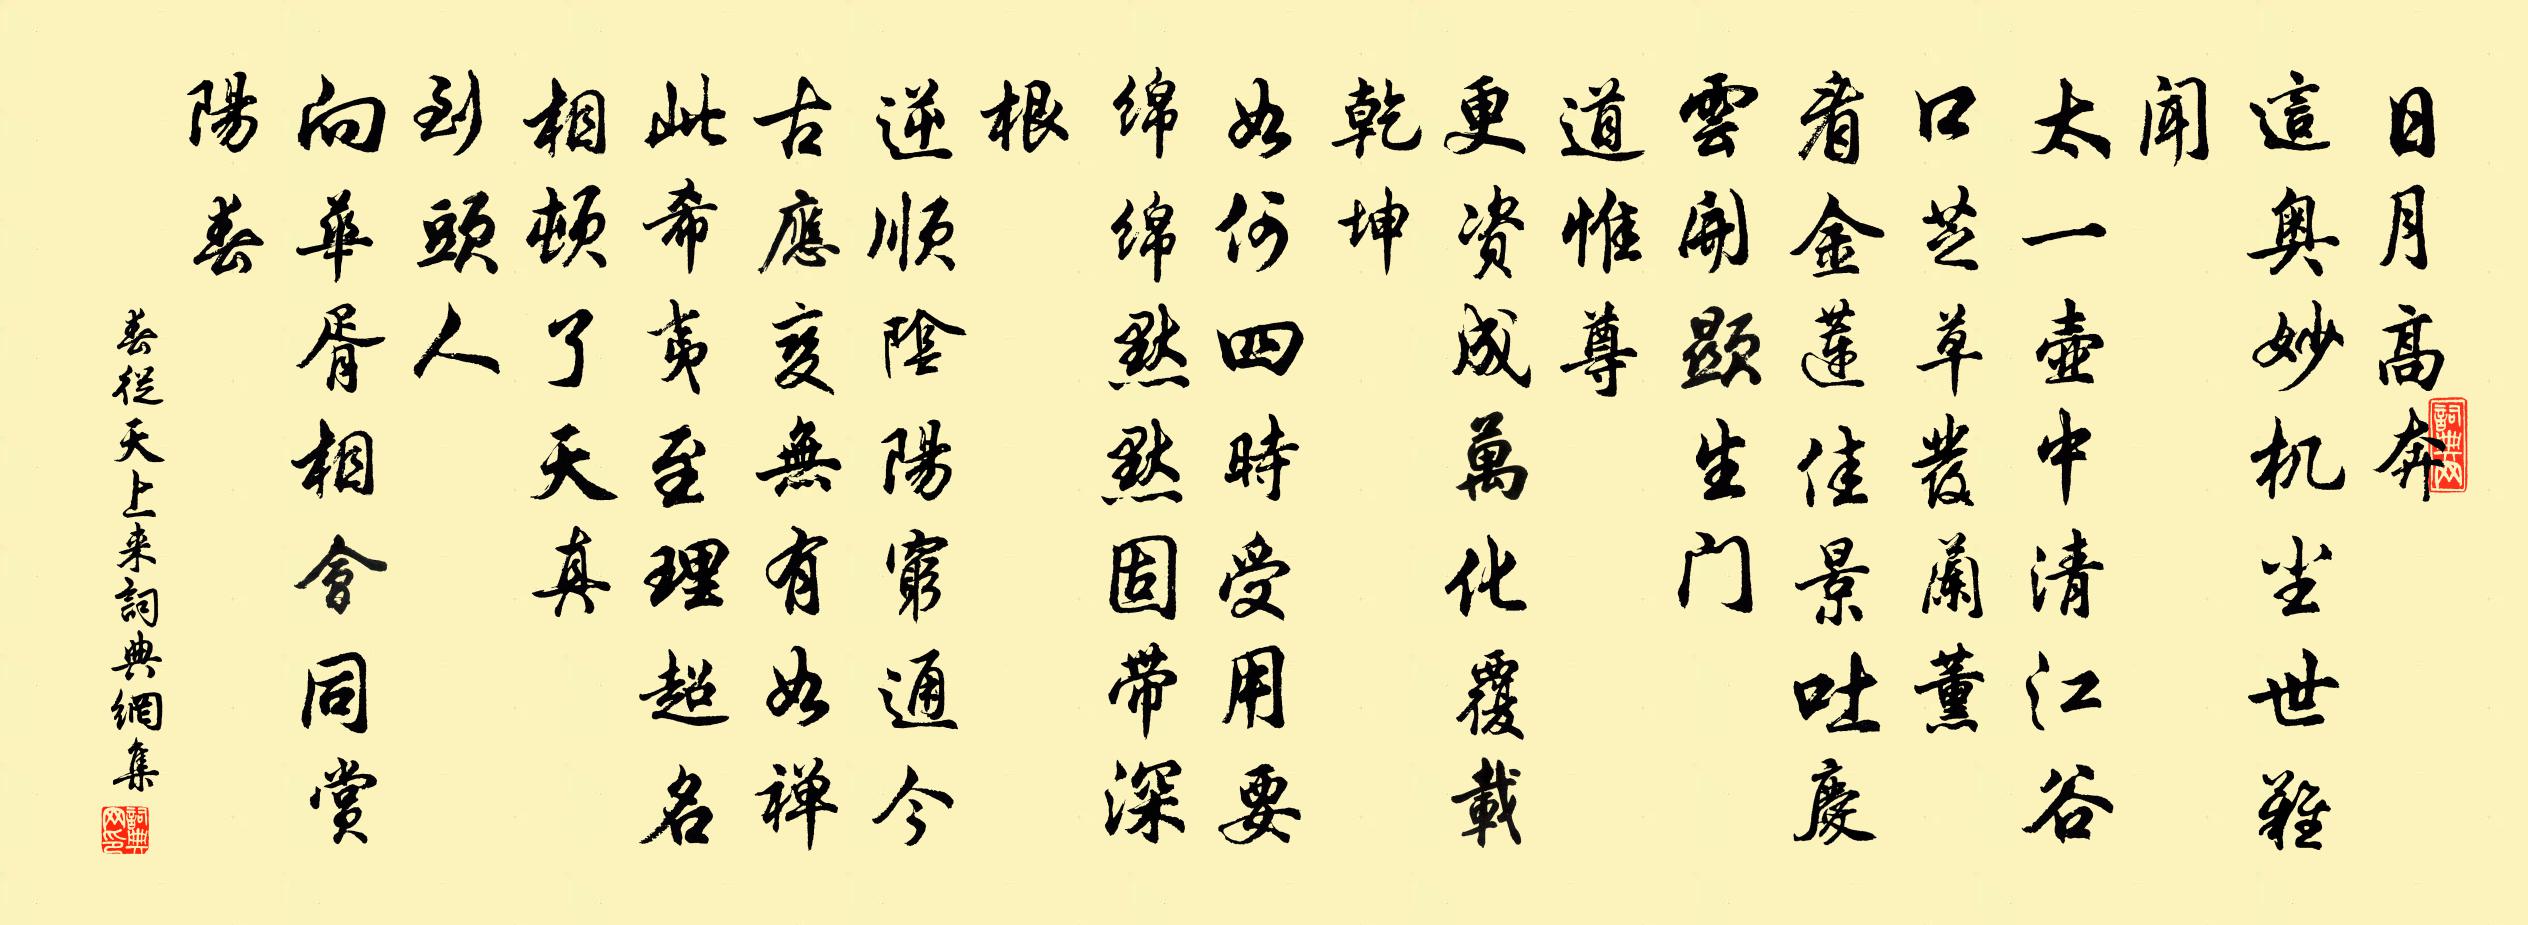 日月高奔
這奧妙机尘世難
闻
太一壺中清江谷
口芝草發蘭薰
看金蓮佳景吐慶
雲開顯生门
道惟尊
更资成萬化覆載
乾坤
如何四時受用要
綿綿默默固带深
根
逆順陰陽窮通今
古應变無有如禅
此希夷至理超名
相頓了天真
到頭人
向華胥相會同赏
陽春
春從天上来詞典網集
詞典网
詞典网印